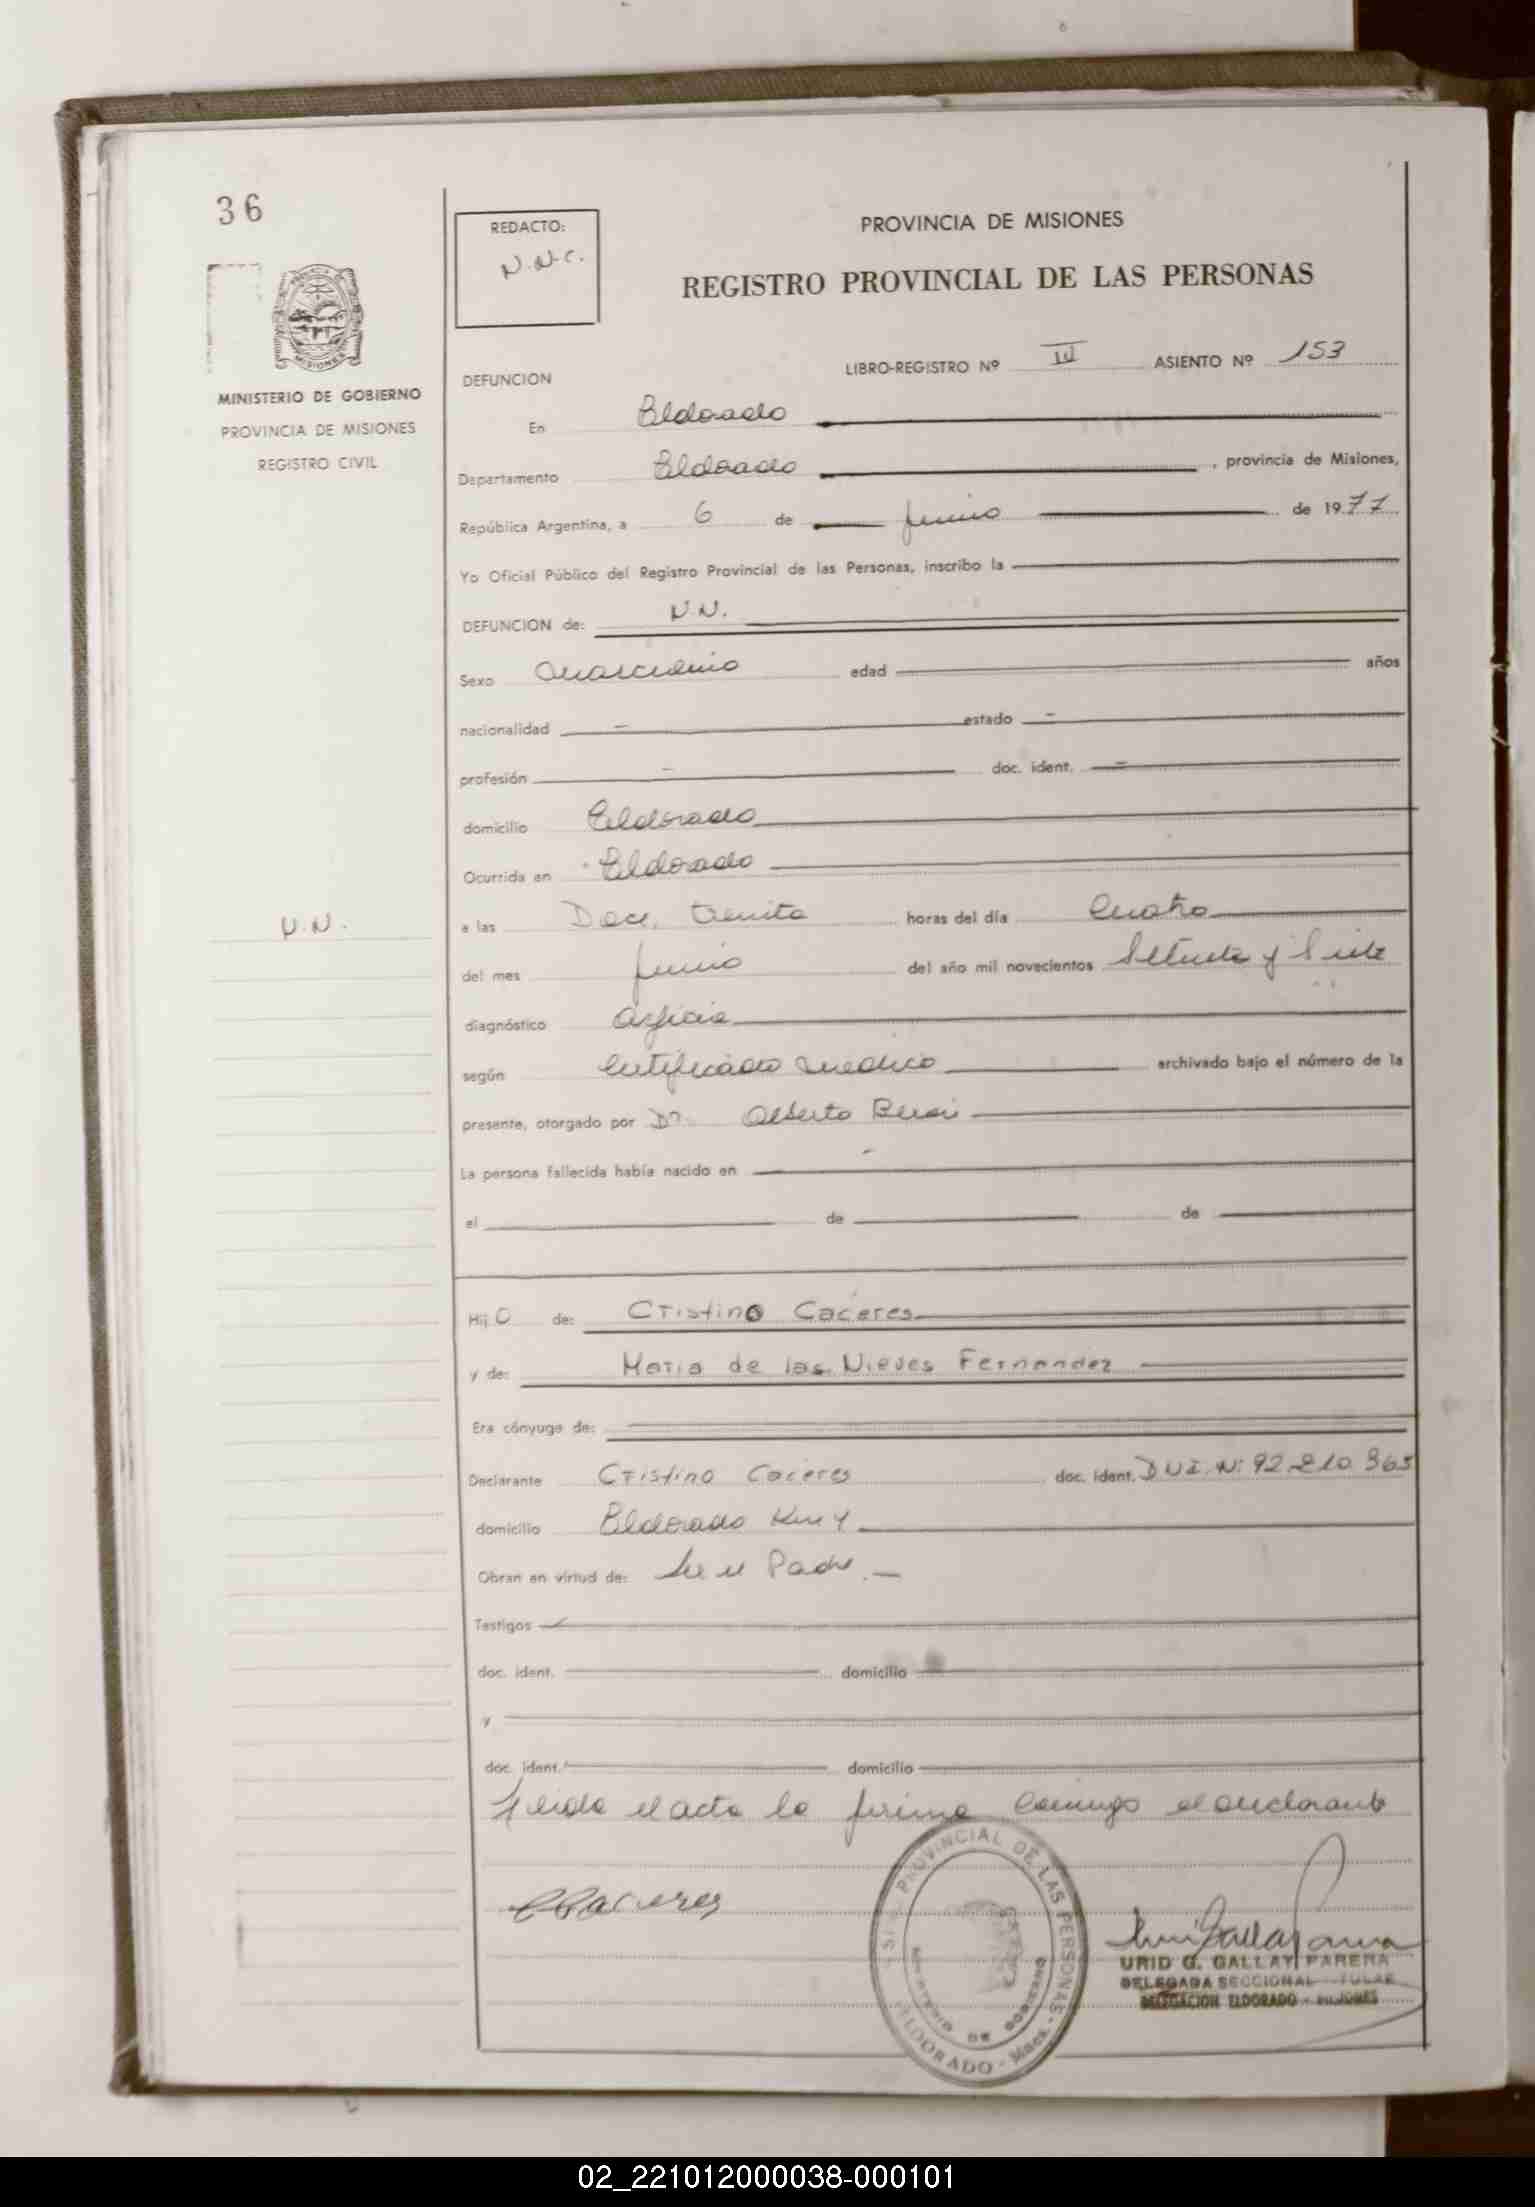 36
REDACTO:
N.N.C.
PROVINCIA DE MISIONES
REGISTRO PROVINCIAL DE LAS PERSONAS
MISIONES
MINISTERIO DE GOBIERNO
PROVINCIA DE MISIONES
REGISTRO CIVIL
LIBRO-REGISTRO Nº III ASIENTO Nº 153
DEFUNCION
En Eldorado
Departamento Eldorado, provincia de Misiones,
República Argentina, a 6 de Junio de 1977
Yo Oficial Público del Registro Provincial de las Personas, inscribo la
DEFUNCION de: N.N.
Sexo Masculino edad años
nacionalidad - estado -
profesión - doc. ident. -
domicilio Eldorado
Ocurrida en Eldorado
N.N.
a las Doce, treinta horas del día Cuatro
del mes Junio del año mil novecientos Setenta y Siete
diagnóstico Asficia
según Certificado Medico archivado bajo el número de la
presente, otorgado por Dr. Alberto
La persona fallecida había nacido en -
el de de
Hijo de: Cristino Caceres
y de: Maria de las Nieves Fernandez
Era cónyuge de:
Declarante Cristino Caceres doc. ident. DUI. Nº 92.210.365
domicilio Eldorado Km 4
Obran en virtud de: Ser el Padre.-
Testigos
doc. ident. domicilio
y
doc. ident. domicilio
Leida el acta la firma conmigo el declarante
CCaceres
PROVINCIAL DE LAS PERSONAS
MINISTERIO DE GOBIERNO
ELDORADO - Mnes. -
URID G. GALLAY PARERA
DELEGADA SECCIONAL TITULAR
DELEGACION ELDORADO - MISIONES
02_221012000038-000101